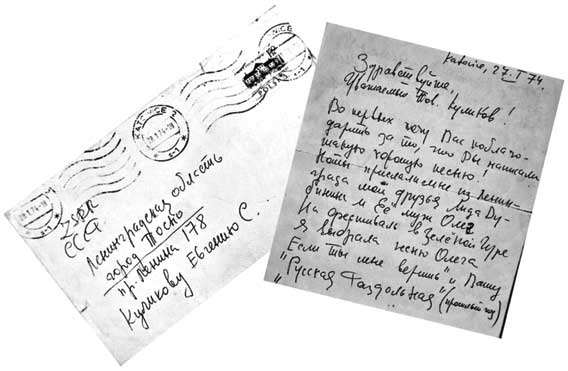 KATOWICE 2
28.1.74-20
ZSRR
СССР
Ленинградская область
город Тосно
пр. Ленина 178
Куликову Евгению С.
Katowice, 27.I.74.
Здравствуйте,
Уважаемый Тов. Куликов!
Во первых хочу Вас поблаго-
дарить за то, что Вы написали
такую хорошую песню!
Ноты прислали мне из Ленин-
града мои друзья Лида Ду-
бинины и Её муж Олег
На фестиваль в Зелёной Гуре
Я выбрала песню Олега
Если ты мне веришь" и Вашу
"Русская Раздольная" (прошлый год)